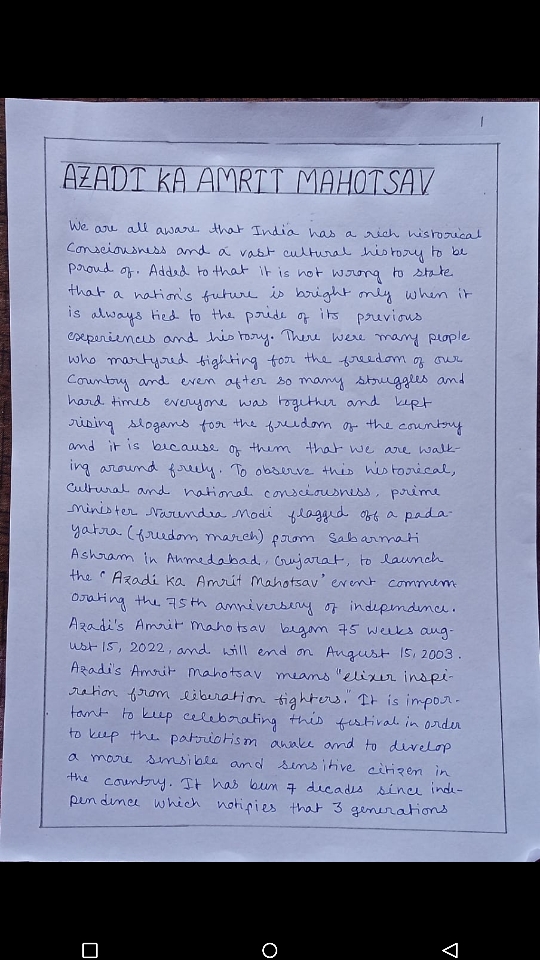 1
AZADI KA AMRIT MAHOTSAV
We are all aware that India has a rich historical
Consciousness and a vast cultural history to be
proud of. Added to that it is not wrong to state
that a nation's future is bright only when it
is always tied to the pride of its previous
experiences and history. There were many people
who martyred fighting for the freedom of our
Country and even after so many struggles and
hard times everyone was together and kept
rising slogans for the freedom of the country
and it is because of them that we are walk-
ing around freely. To observe this historical,
cultural and national consciousness, prime
minister Narendra Modi flagged off a pada-
yatra (freedom march) from Sabarmati
Ashram in Ahmedabad, Gujarat, to launch
the "Azadi Ka Amrit Mahotsav" event commem-
orating the 75th anniversery of independence.
Azadi's Amrit Mahotsav began 75 weeks aug-
ust 15, 2022, and will end on August 15, 2003.
Azadi's Amrit Mahotsav means "elixer inspi-
ration from liberation fighters." It is impor-
tant to keep celebrating this festival in order
to keep the patriotism awake and to develop
a more sensible and sensitive citizen in
the country. It has been 7 decades since inde-
pendence which notifies that 3 generations